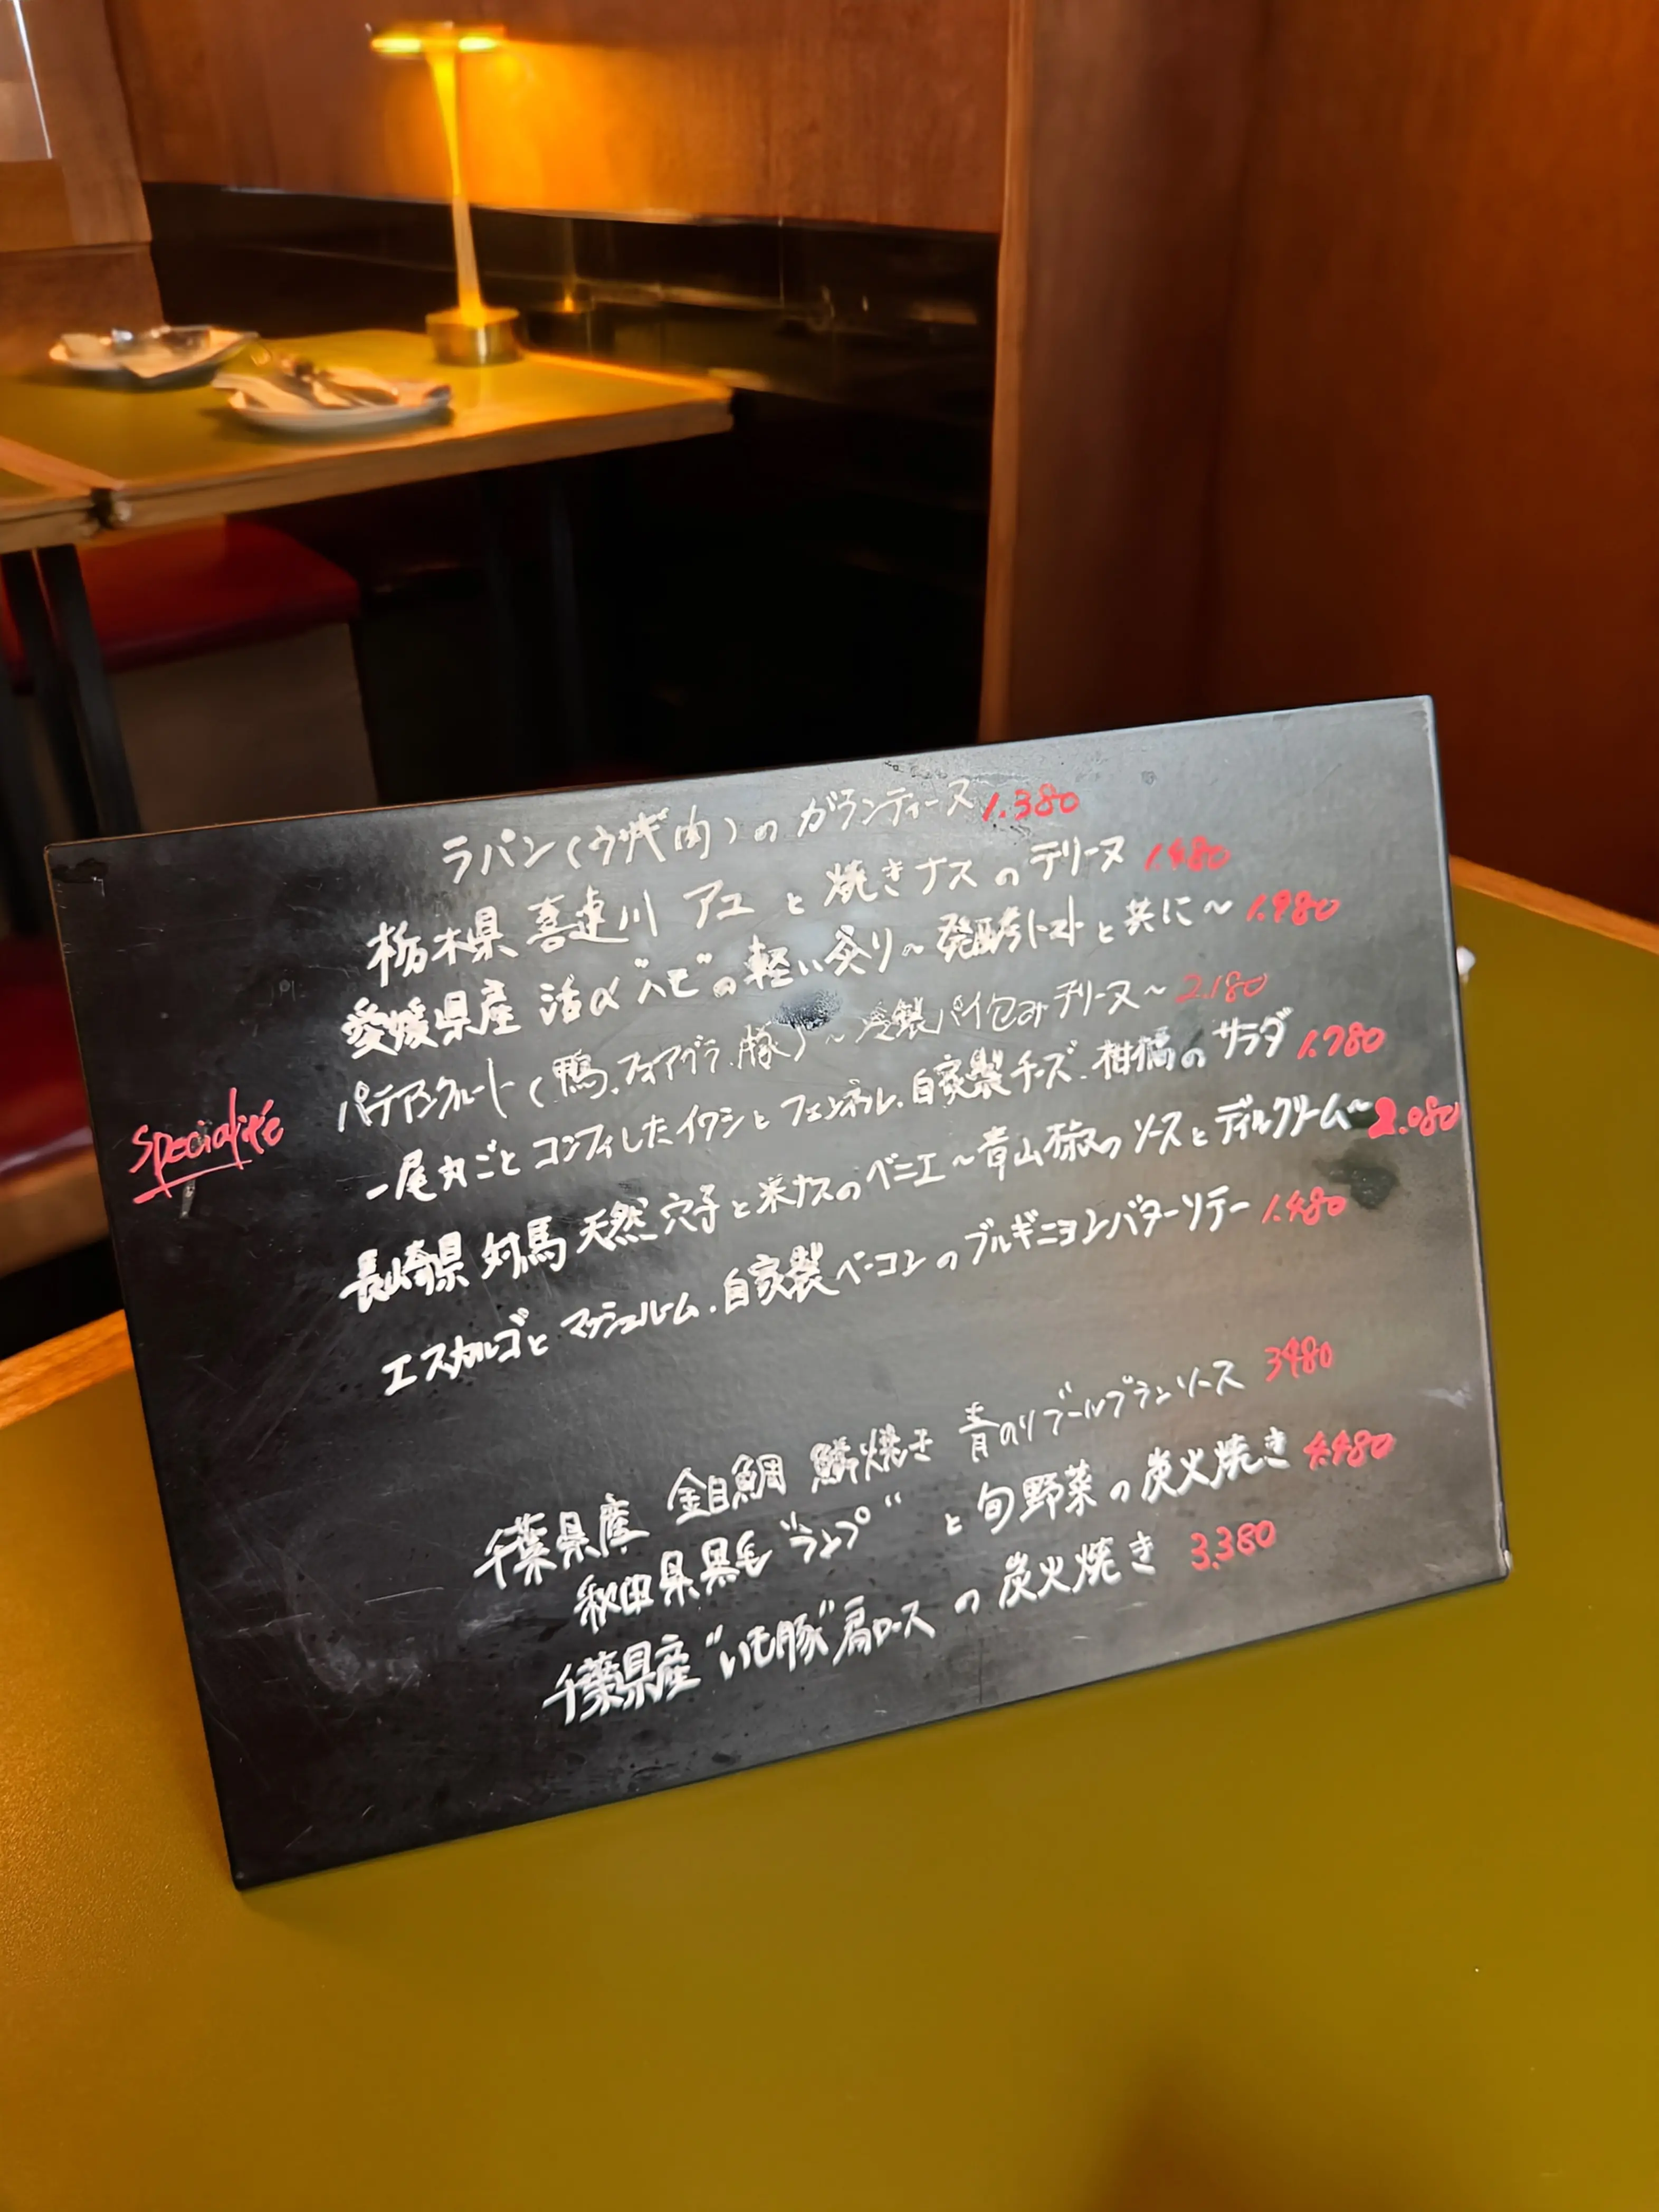 ラパン(ウサギ肉)の ガランティーヌ 1.380
栃木県 喜連川 アユ と 焼きナス の テリーヌ 1.480
愛媛県産 活〆"ハモ"の 軽い炙り〜発酵トマトと共に〜 1.980
Specialité パテアンクルート(鴨.フォアグラ.豚)〜冷製パイ包みテリーヌ〜 2.180
一尾丸ごと コンフィしたイワシと フェンネル.自家製チーズ.柑橘の サラダ 1.780
長崎県 対馬 天然 穴子と米ナスのベニエ〜青山椒の ソースとディルクリーム〜 2.080
エスカルゴと マッシュルーム.自家製ベーコンの ブルギニヨンバターソテー 1.480
千葉県産 金目鯛 鱗焼き 青のりブールブランソース 3480
秋田県黒毛"ランプ" と 旬野菜の 炭火焼き 4.480
千葉県産"いも豚"肩ロース の 炭火焼き 3.380